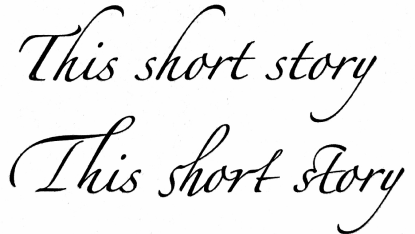 This short story
This short story